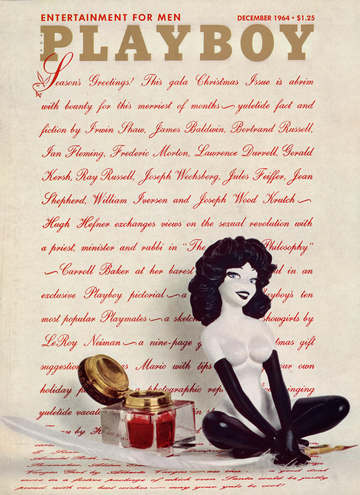 ENTERTAINMENT FOR MEN DECEMBER 1964 • $1.25
PLAYBOY
Season's Greetings! This gala Christmas Issue is abrim
with bounty for this merriest of months~yuletide fact and
fiction by Irwin Shaw, James Baldwin, Bertrand Russell,
Ian Fleming, Frederic Morton, Lawrence Durrell, Gerald
Kersh, Ray Russell, Joseph Wechsberg, Jules Feiffer, Jean
Shepherd, William Iversen and Joseph Wood Krutch~
Hugh Hefner exchanges views on the sexual revolution with
a priest, minister and rabbi in "The Philosophy"
~Carroll Baker at her barest d in an
exclusive Playboy pictorial~a yboy's ten
most popular Playmates~a sketch howgirls by
LeRoy Neiman~a nine-page tmas gift
suggestio s Mario with tips ur own
holiday p a photographic repor inging
yuletide vacatio